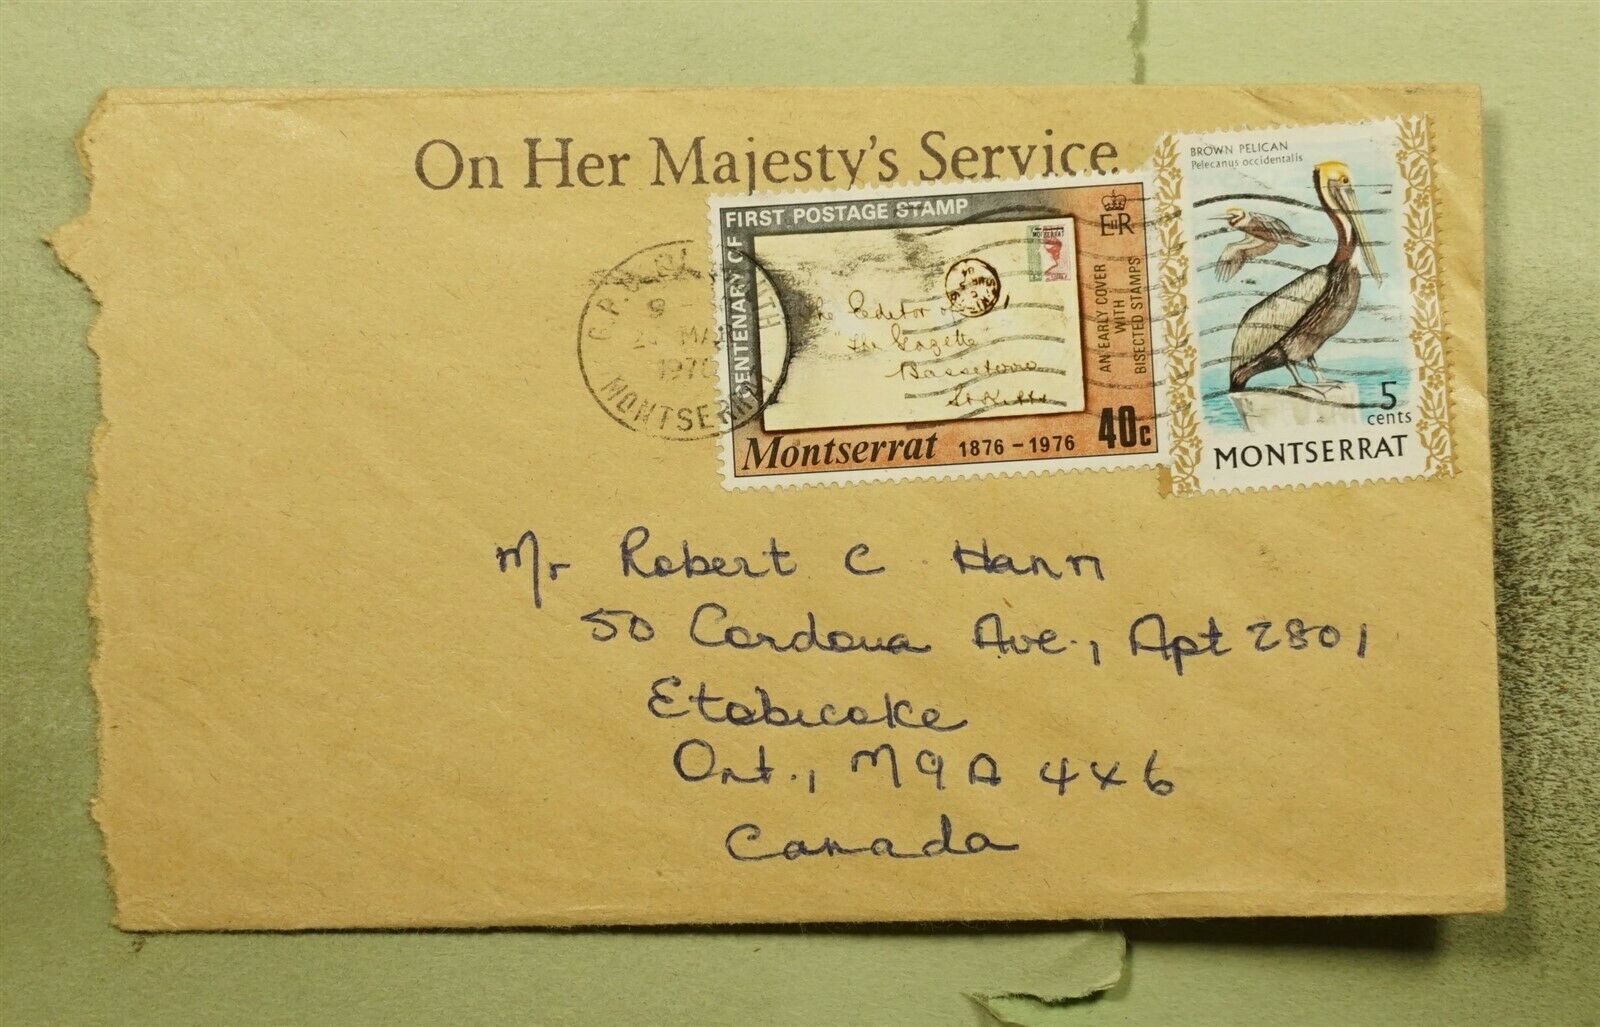 On Her Majesty's Service
BROWN PELICAN
Pelecanus occidentalis
5
cents
MONTSERRAT
CENTENARY OF
FIRST POSTAGE STAMP
E II R
MONTSERRAT
AN EARLY COVER
WITH
BISECTED STAMPS
The Editor of
"The Gazette
Basseterre
St Kitts
Montserrat 1876 – 1976 40c
G.P.O. PLYMOUTH
9
MAR
MONTSERRAT
Mr Robert C. Hann
50 Cordova Ave., Apt 2801
Etobicoke
Ont., M9A 4X6
Canada